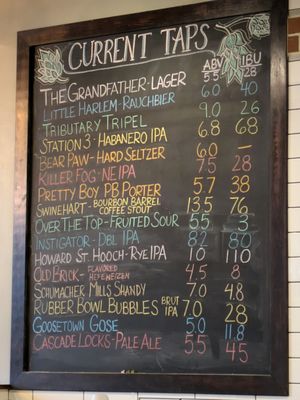 CURRENT TAPS ABV IBU
THE GRANDFATHER - LAGER 5.5 28
LITTLE HARLEM - RAUCHBIER 6.0 40
TRIBUTARY TRIPEL 9.0 26
STATION 3 - HABANERO IPA 6.8 68
BEAR PAW - HARD SELTZER 6.0 —
KILLER FOG - NE IPA 7.5 28
PRETTY BOY PB PORTER 5.7 38
SWINEHART - BOURBON BARREL COFFEE STOUT 13.5 76
OVER THE TOP - FRUITED SOUR 5.5 3
INSTIGATOR - DBL IPA 8.2 80
HOWARD ST. HOOCH - RYE IPA 10 110
OLD BRICK - FLAVORED HEFEWEIZEN 4.5 8
SCHUMACHER MILLS SHANDY 7.0 4.8
RUBBER BOWL BUBBLES BRUT IPA 7.0 28
GOOSETOWN GOSE 5.0 11.8
CASCADE LOCKS - PALE ALE 5.5 45